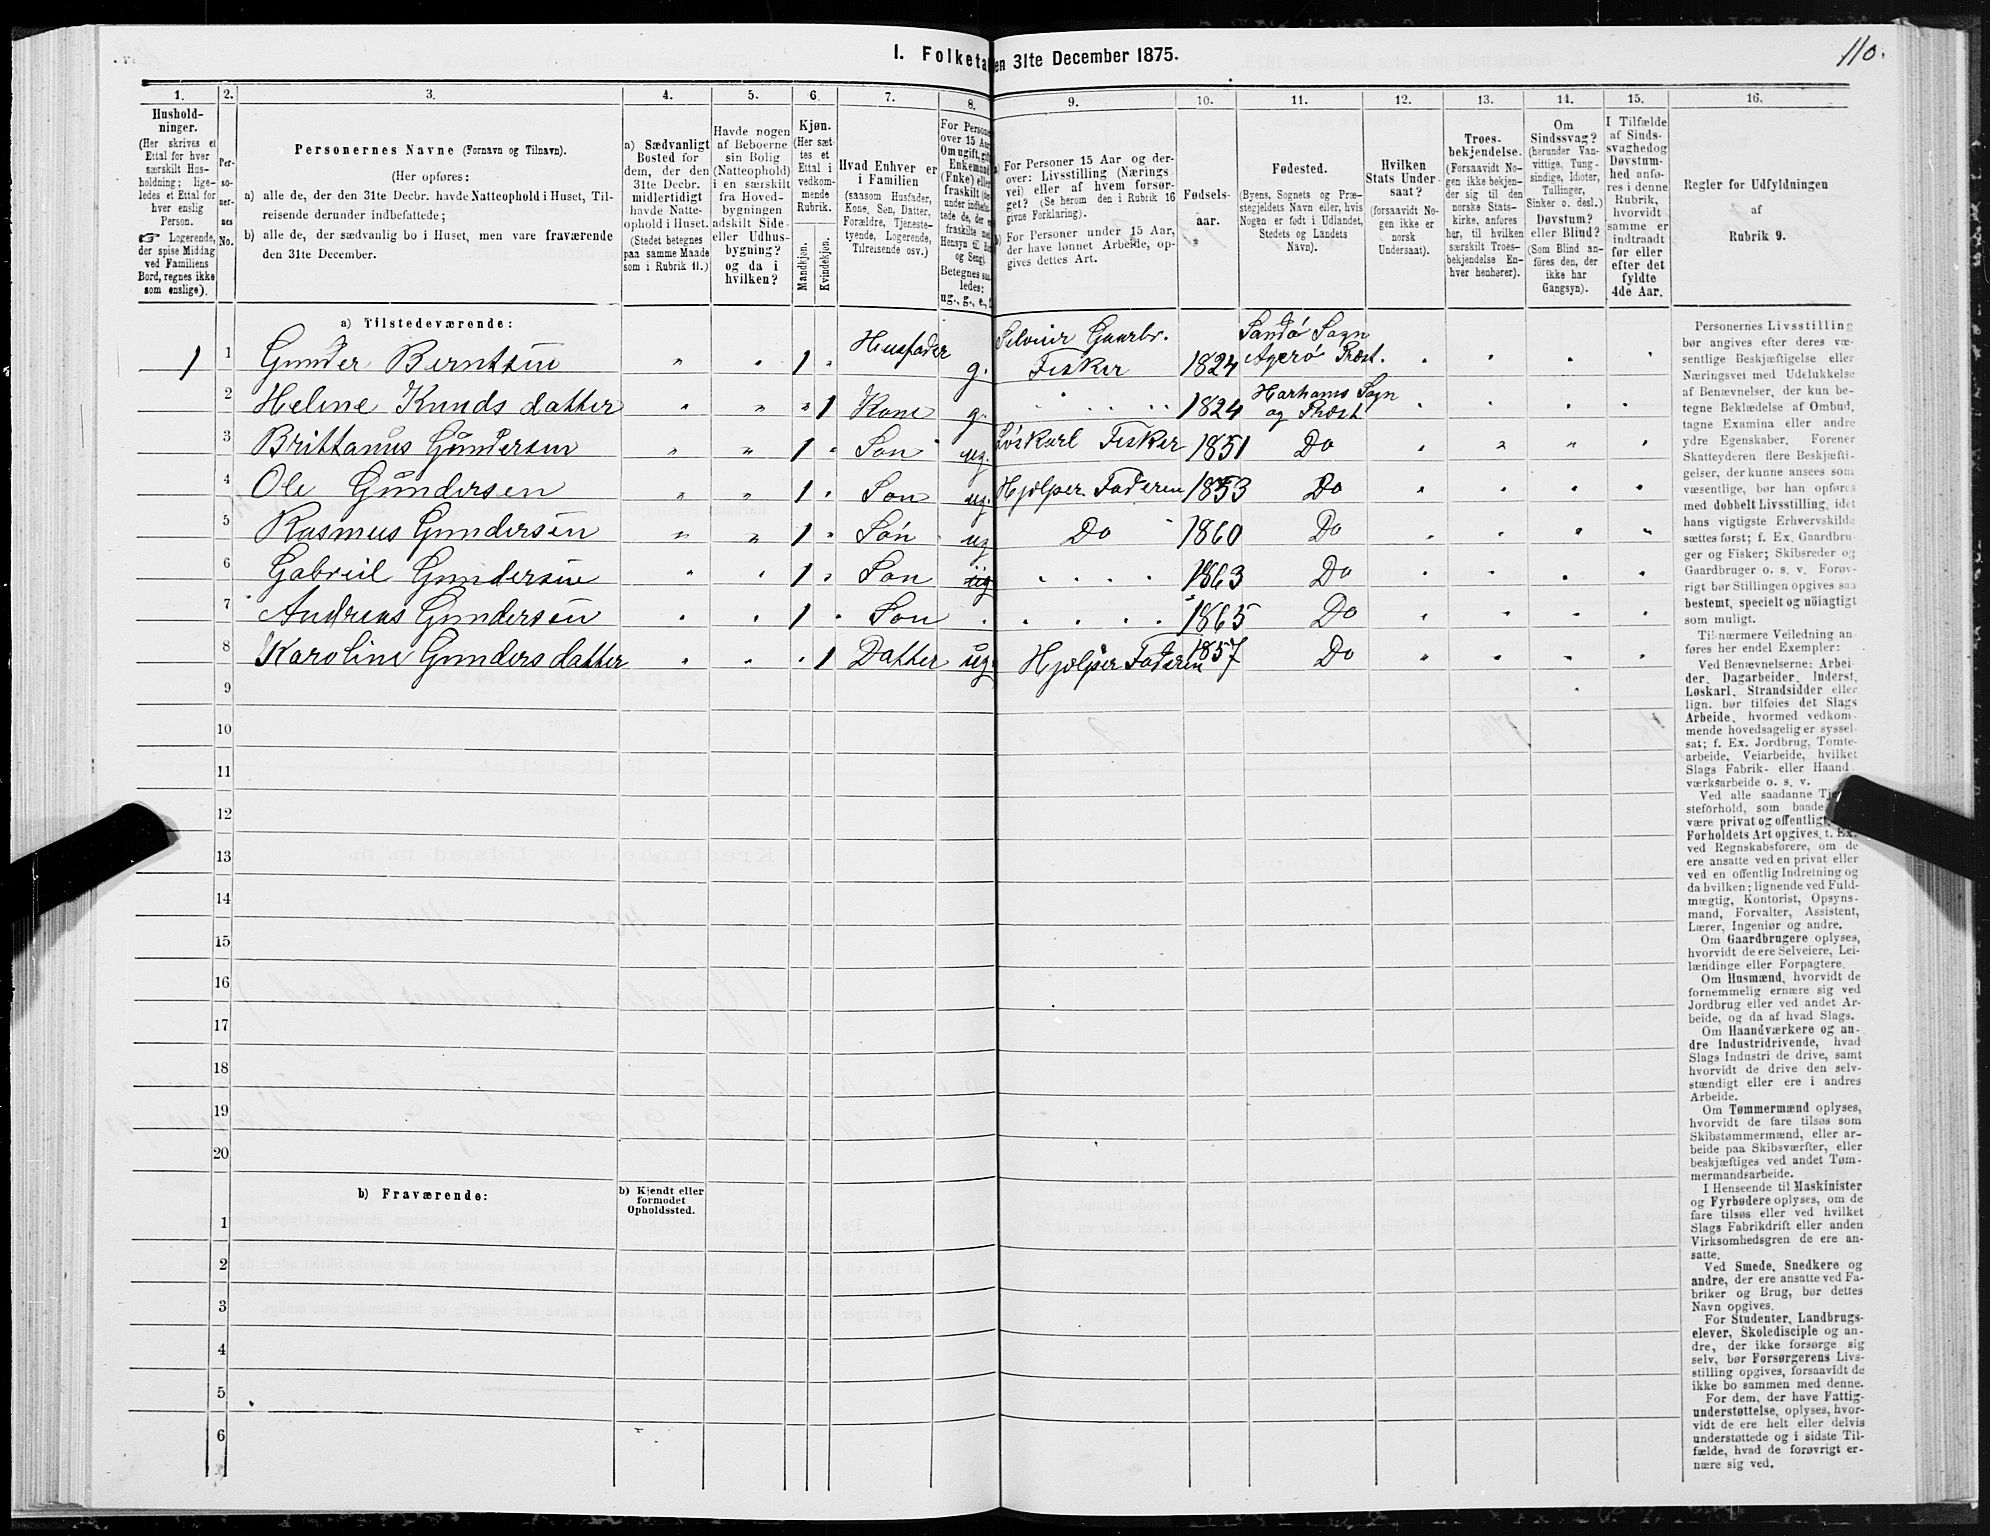 110.
I. Folketa en 31te December 1875.
1. 2. 3. 4. 5. 6. 7. 8. 9. 10. 11. 12. 13. 14. 15. 16.
Hushold-
ninger.
(Her skrives et
Ettal for hver
særskilt Hus-
holdning; lige-
ledes et Ettal for
hver enslig
Person.
☞ Logerende,
der spise Middag
ved Familiens
Bord, regnes ikke
som enslige).
Per-
so-
ner-
nes
No.
Personernes Navne (Fornavn og Tilnavn).
(Her opføres:
a) alle de, der den 31te Decbr. havde Natteophold i Huset, Til-
reisende derunder indbefattede;
b) alle de, der sædvanlig bo i Huset, men vare fraværende
den 31te December.
a) Sædvanligt
Bosted for
dem, der den
31te Decbr.
midlertidigt
havde Natte-
ophold i Huset.
(Stedet betegnes
paa samme Maade
som i Rubrik 11.)
Havde nogen
af Beboerne
sin Bolig
(Natteophold)
i en særskilt
fra Hoved-
bygningen
adskilt Side-
eller Udhus-
bygning?
og da i
hvilken?
Kjøn.
(Her sæt-
tes et
Ettal i
vedkom-
mende
Rubrik.
Mandkjøn.
Kvindekjøn.
Hvad Enhver er
i Familien
(saasom Husfader,
Kone, Søn, Datter,
Forældre, Tjeneste-
tyende, Logerende,
Tilreisende osv.)
For Persone
over 15 Aar
Om ugift, gift
Enkemand
(Enke) elle
fraskilt (de
under indbefat-
tede de, der e
fraskilte me
Hensyn til B
og Seng).
Betegnes saa-
ledes:
ug., g., e.,
a) For Personer 15 Aar og der-
over: Livsstilling (Nærings-
vei) eller af hvem forsør-
get? (Se herom den i Rubrik 16
givne Forklaring).
b) For Personer under 15 Aar,
der have lønnet Arbeide, op-
gives dettes Art.
Fødsels-
aar.
Fødested.
(Byens, Sognets og Præ-
stegjeldets Navn eller, hvis
Nogen er født i Udlandet,
Stedets og Landets
Navn).
Hvilken
Stats Under-
saat?
(forsaavidt No-
gen ikke er
norsk
Undersaat).
Troes-
bekjendelse.
(Forsaavidt No-
gen ikke bekjen-
der sig til den
norske Stats-
kirke, anføres
her, til hvilken
særskilt Troes-
bekjendelse En-
hver henhører).
Om
Sindssvag?
(herunder Van-
vittige, Tung-
sindige, Idioter,
Tullinger,
Sinker o. desl.)
Døvstum?
eller Blind?
(Som Blind an-
føres den, der
ikke har
Gangsyn).
I Tilfælde
af Sinds-
svaghed og
Døvstum-
hed anfø-
res i denne
Rubrik,
hvorvidt
samme er
indtraadt
før eller
efter det
fyldte
4de Aar.
Regler for Udfyldningen
af
Rubrik 9.
a) Tilstedeværende:
1 1 Gunder Berntsen " " 1 " Husfader g. Selveier Gaarbr. Fisker 1824 Sandø Sogn Agerø Præst. " " " "
2 Helene Knuds datter " " " 1 Kone g. " " " " 1824 Harhams Sogn og Præst " " " "
3 Brittanus Gundersen " " 1 " Søn ug. Løskarl Fisker 1851 Do " " " "
4 Ole Gundersen " " 1 " Søn ug. Hjelper Faderen 1853 Do " " " "
5 Rasmus Gundersen " " 1 " Søn ug Do 1860 Do " " " "
6 Gabriel Gundersen " " 1 " Søn ug " " " " 1863 Do " " " "
7 Andreas Gundersen " " 1 " Søn " " " " " 1865 Do " " " "
8 Karoline Gunders datter " " " 1 Datter ug. Hjelper Faderen 1857 Do " " " "
9
10
11
12
13
14
15
16
17
18
19
20
b) Fraværende:
b) Kjendt eller
formodet
Opholdssted.
1
2
3
4
5
6
Personernes Livsstilling
bør angives efter deres væ-
sentlige Beskjæftigelse eller
Næringsvei med Udelukkelse
af Benævnelser, der kun be-
tegne Beklædelse af Ombud,
tagne Examina eller andre
ydre Egenskaber. Forener
Skatteyderen flere Beskjæfti-
gelser, der kunne ansees som
væsentlige, bør han opføres
med dobbelt Livsstilling, idet
hans vigtigste Erhvervskilde
sættes først; f. Ex. Gaardbru-
ger og Fisker; Skibsreder og
Gaardbruger o. s. v. Forøv-
rigt bør Stillingen opgives saa
bestemt, specielt og nöiagtigt
som muligt.
Til nærmere Veiledning an-
føres her endel Exempler:
Ved Benævnelserne: Arbei-
der, Dagarbeider, Inderst,
Løskarl, Strandsidder eller
lign. bør tilføies det Slags
Arbeide, hvormed vedkom-
mende hovedsagelig er syssel-
sat; f. Ex. Jordbrug, Tomte-
arbeide, Veiarbeide, hvilket
Slags Fabrik- eller Haand-
værksarbeide o. s. v.
Ved alle saadanne Tj
steforhold, som baade
være privat og offentligt,
Forholdets Art opgives, t. Ex.
ved Regnskabsførere, om de
ere ansatte ved en privat eller
ved en offentlig Indretning og
da hvilken; lignende ved Fuld-
mægtig, Kontorist, Opsyns-
mand, Forvalter, Assistent,
Lærer, Ingeniør og andre.
Om Gaardbrugere oplyses,
hvorvidt de ere Selveiere, Lei-
lændinge eller Forpagtere.
Om Husmænd, hvorvidt de
fornemmelig ernære sig ved
Jordbrug eller ved andet Ar-
beide, og da af hvad Slags.
Om Haandværkere og an-
dre Industridrivende, hvad
Slags Industri de drive, samt
hvorvidt de drive den selv-
stændigt eller ere i andres
Arbeide.
Om Tømmermænd oplyses,
hvorvidt de fare tilsøs som
Skibstømmermænd, eller ar-
beide paa Skibsværfter, eller
beskjæftiges ved andet Tøm-
mermandsarbeide.
I Henseende til Maskinister
og Fyrbødere oplyses, om de
fare tilsøs eller ved hvilket
Slags Fabrikdrift eller anden
Virksomhedsgren de ere an-
satte.
Ved Smede, Snedkere og
andre, der ere ansatte ved Fa-
briker og Brug, bør dettes
Navn opgives.
For Studenter, Landbrugs-
elever, Skoledisciple og an-
dre, der ikke forsørge sig
selv, bør Forsørgerens Livs-
stilling opgives, forsaavidt de
ikke bo sammen med denne.
For dem, der have Fattig-
understøttelse, oplyses, hvor-
vidt de ere helt eller delvis
understøttede og i sidste Til-
fælde, hvad de forøvrigt er-
nære sig ved.